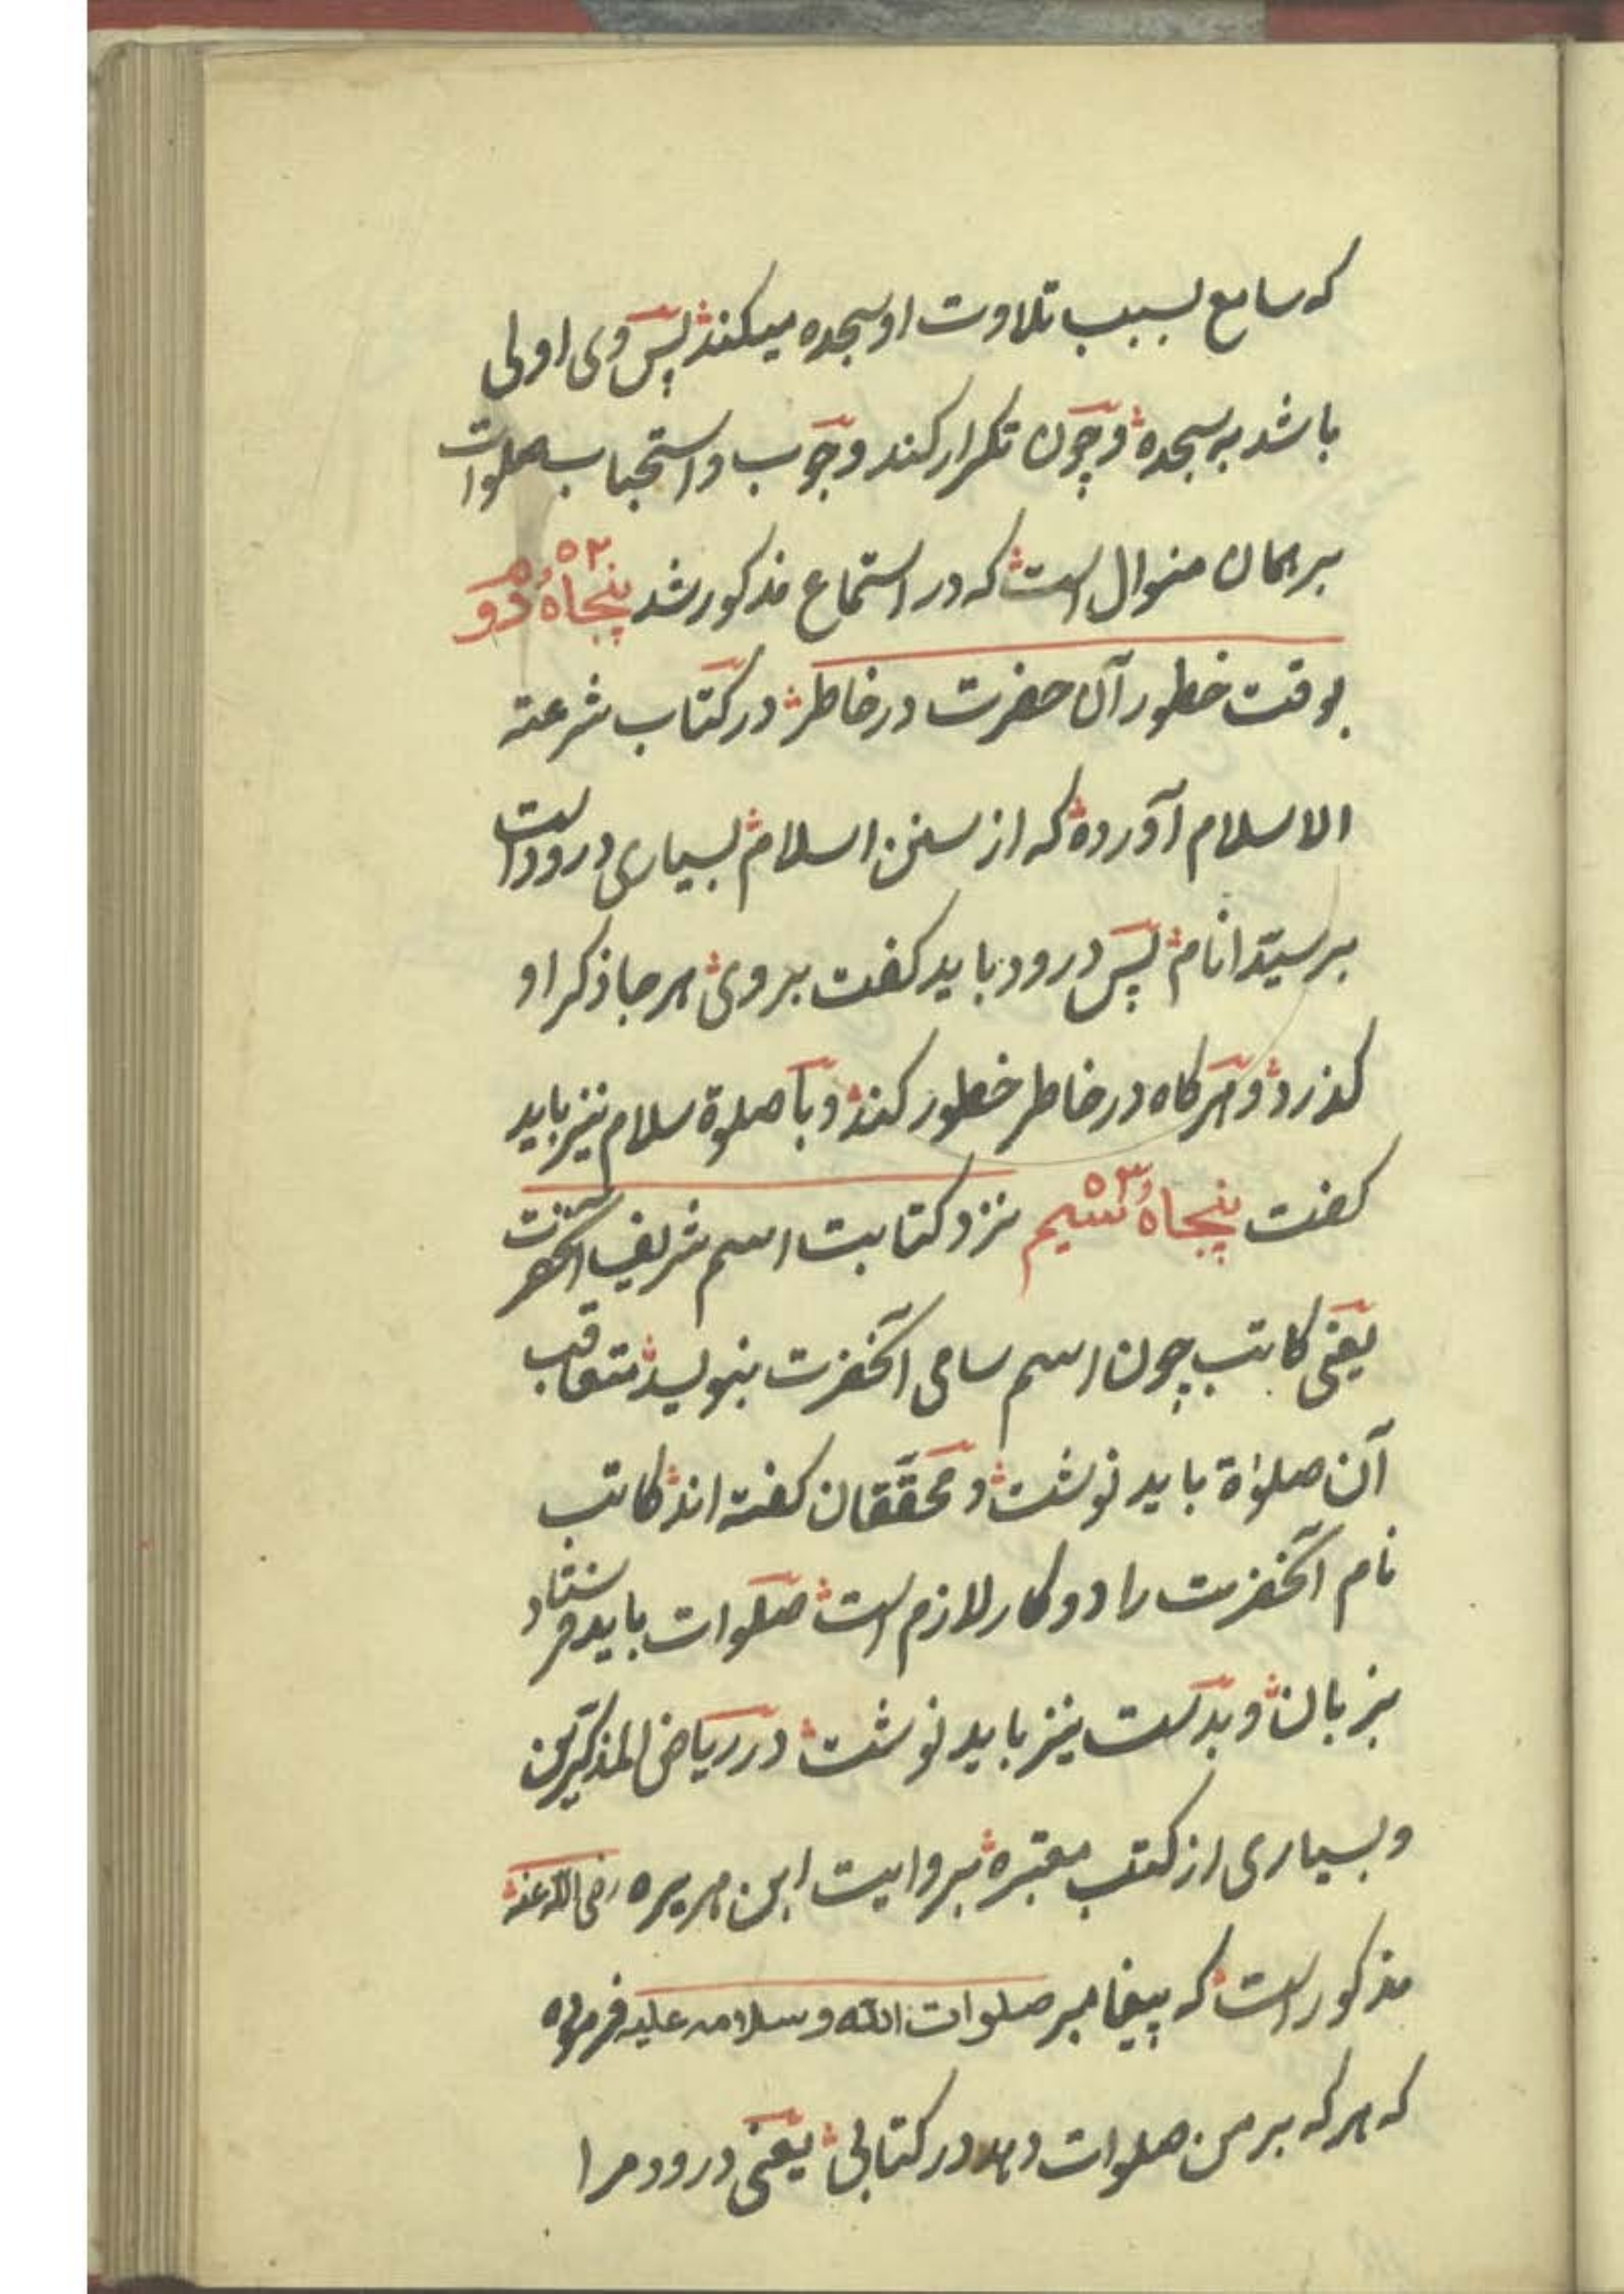 که سامع بسبب تلاوت او سجده میکند پس وی اولی
باشد به سجده و چون تکرار کند وجوب و استحباب صلوات
بر همان منوال است که در استماع مذکور شد پنجاه و دوم ۵۲
بوقت خطور آن حضرت در خاطر در کتاب شرعة
الاسلام آورده که از سنن اسلام بسیاری درود است
بر سیّد انام پس درود باید کفت بر وی هر جا ذکر او
کذرد و هر کاه در خاطر خطور کند و با صلوة سلام نیز باید
کفت پنجاه و سیم ۵۳ نزد کتابت اسم شریف آنحضرت
یعنی کاتب چون اسم سامی آنحضرت بنویسد متعاقب
آن صلوٰة باید نوشت و محقّقان کفته اند کاتب
نام آنحضرت را دو کار لازم است صلوات باید فرستاد
بزبان و بدست نیز باید نوشت در ریاض المذکّرین
و بسیاری از کتب معتبره بروایت ابن هریره رضی الله عنه
مذکور است که پیغامبر صلوات الله و سلامه علیه فرموده
که هر که بر من صلوات دهد در کتابی یعنی درود مرا